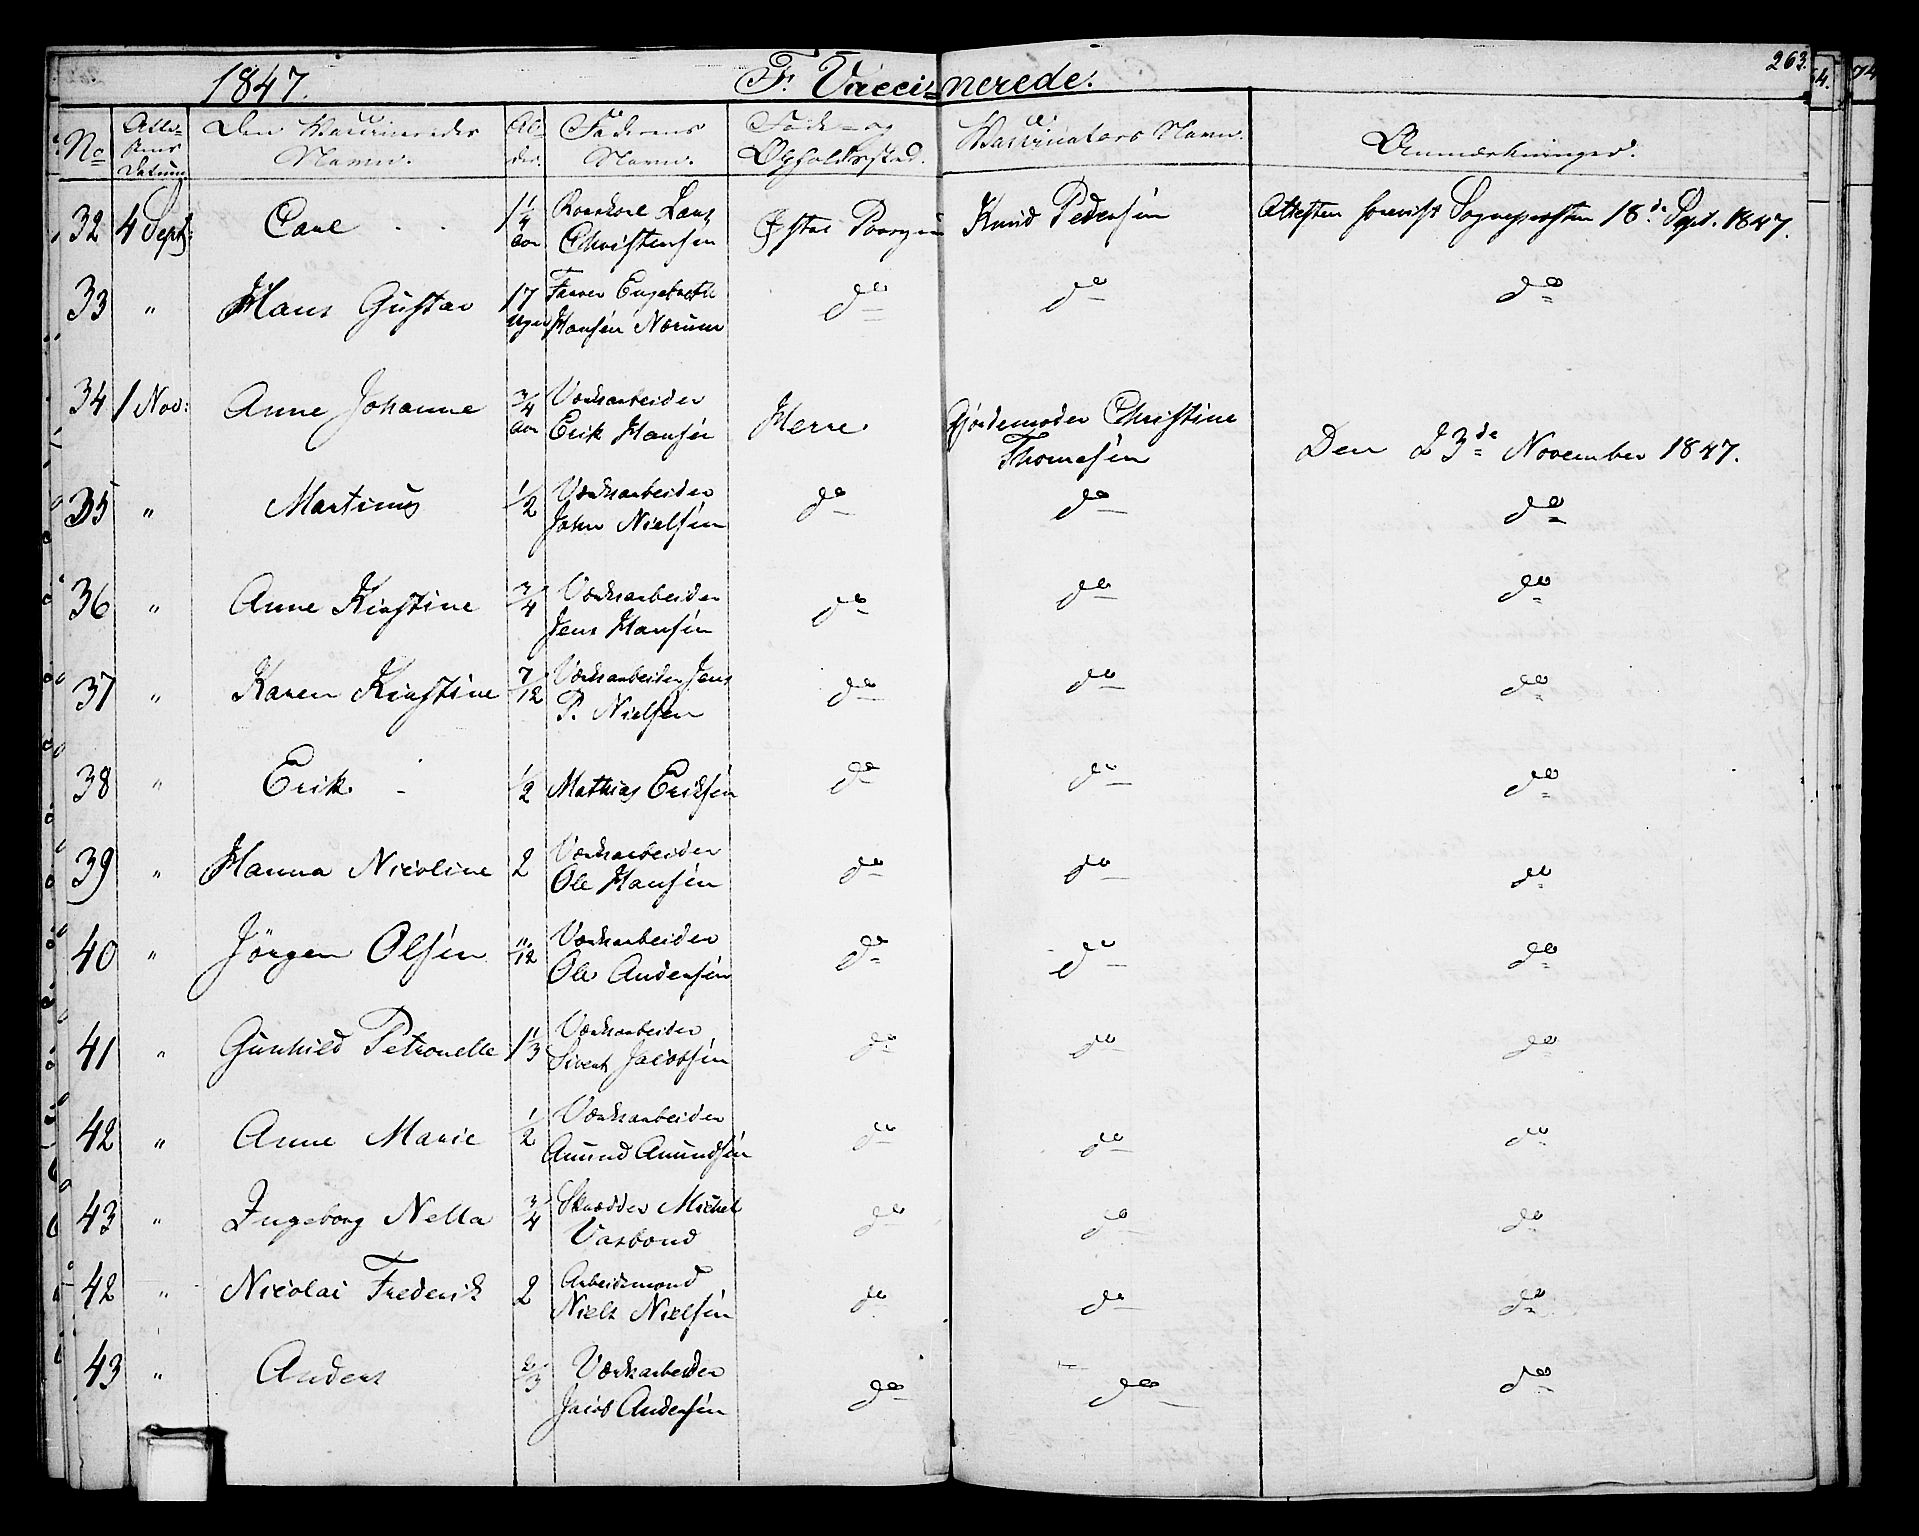 263.
1847. F. Vaccinerede.
No Attestens Datum Den Vaccineredes Navn. Alder. Faderens Navn. Føde- og Opholdssted. Vaccinateurs Navn. Anmærkninger.
32 4 Sept: Carl 1 1/4 Aar Lars Christensen Knud Pedersen Attesten forevist Sogneprøsten 18de Sept. 1847.
33 " Hans Gustav 17 Uger Farver Engebreth Hansen Narum do do do
34 1 Nov: Anne Johanne 3/4 Aar Værksarbeider Erik Hansen Herre Gjordemoder Christine Thomesen Den 23de November 1847.
35 " Martinus 1/2 Værksarbeider John Nielsen do do do
36 " Anne Kirstine 3/4 Værksarbeider Jens Hansen do do do
37 " Karen Kirstine 7/12 Værksarbeider Jens P. Nielsen do do do
38 " Erik 1/2 Mathias Eriksen do do do
39 " Hanna Nicoline 2 Værksarbeider Ole Hansen do do do
40 " Jörgen Olsen 11/12 Værksarbeider Ole Andersen do do do
41 " Gunhild Petronelle 1 1/3 Værksarbeider Sivert Jacobsen do do do
42 " Anne Marie 1/2 Værksarbeider Amund Amundsen do do do
43 " Ingeborg Nella 3/4 Skrædder Michel Vasbond do do do
42 " Nicolai Frederik 2 Arbeidsmand Niels Nielsen do do do
43 " Anders 2/3 Værksarbeider Jacob Andersen do do do